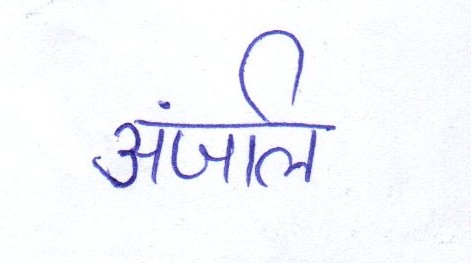 अंजलि